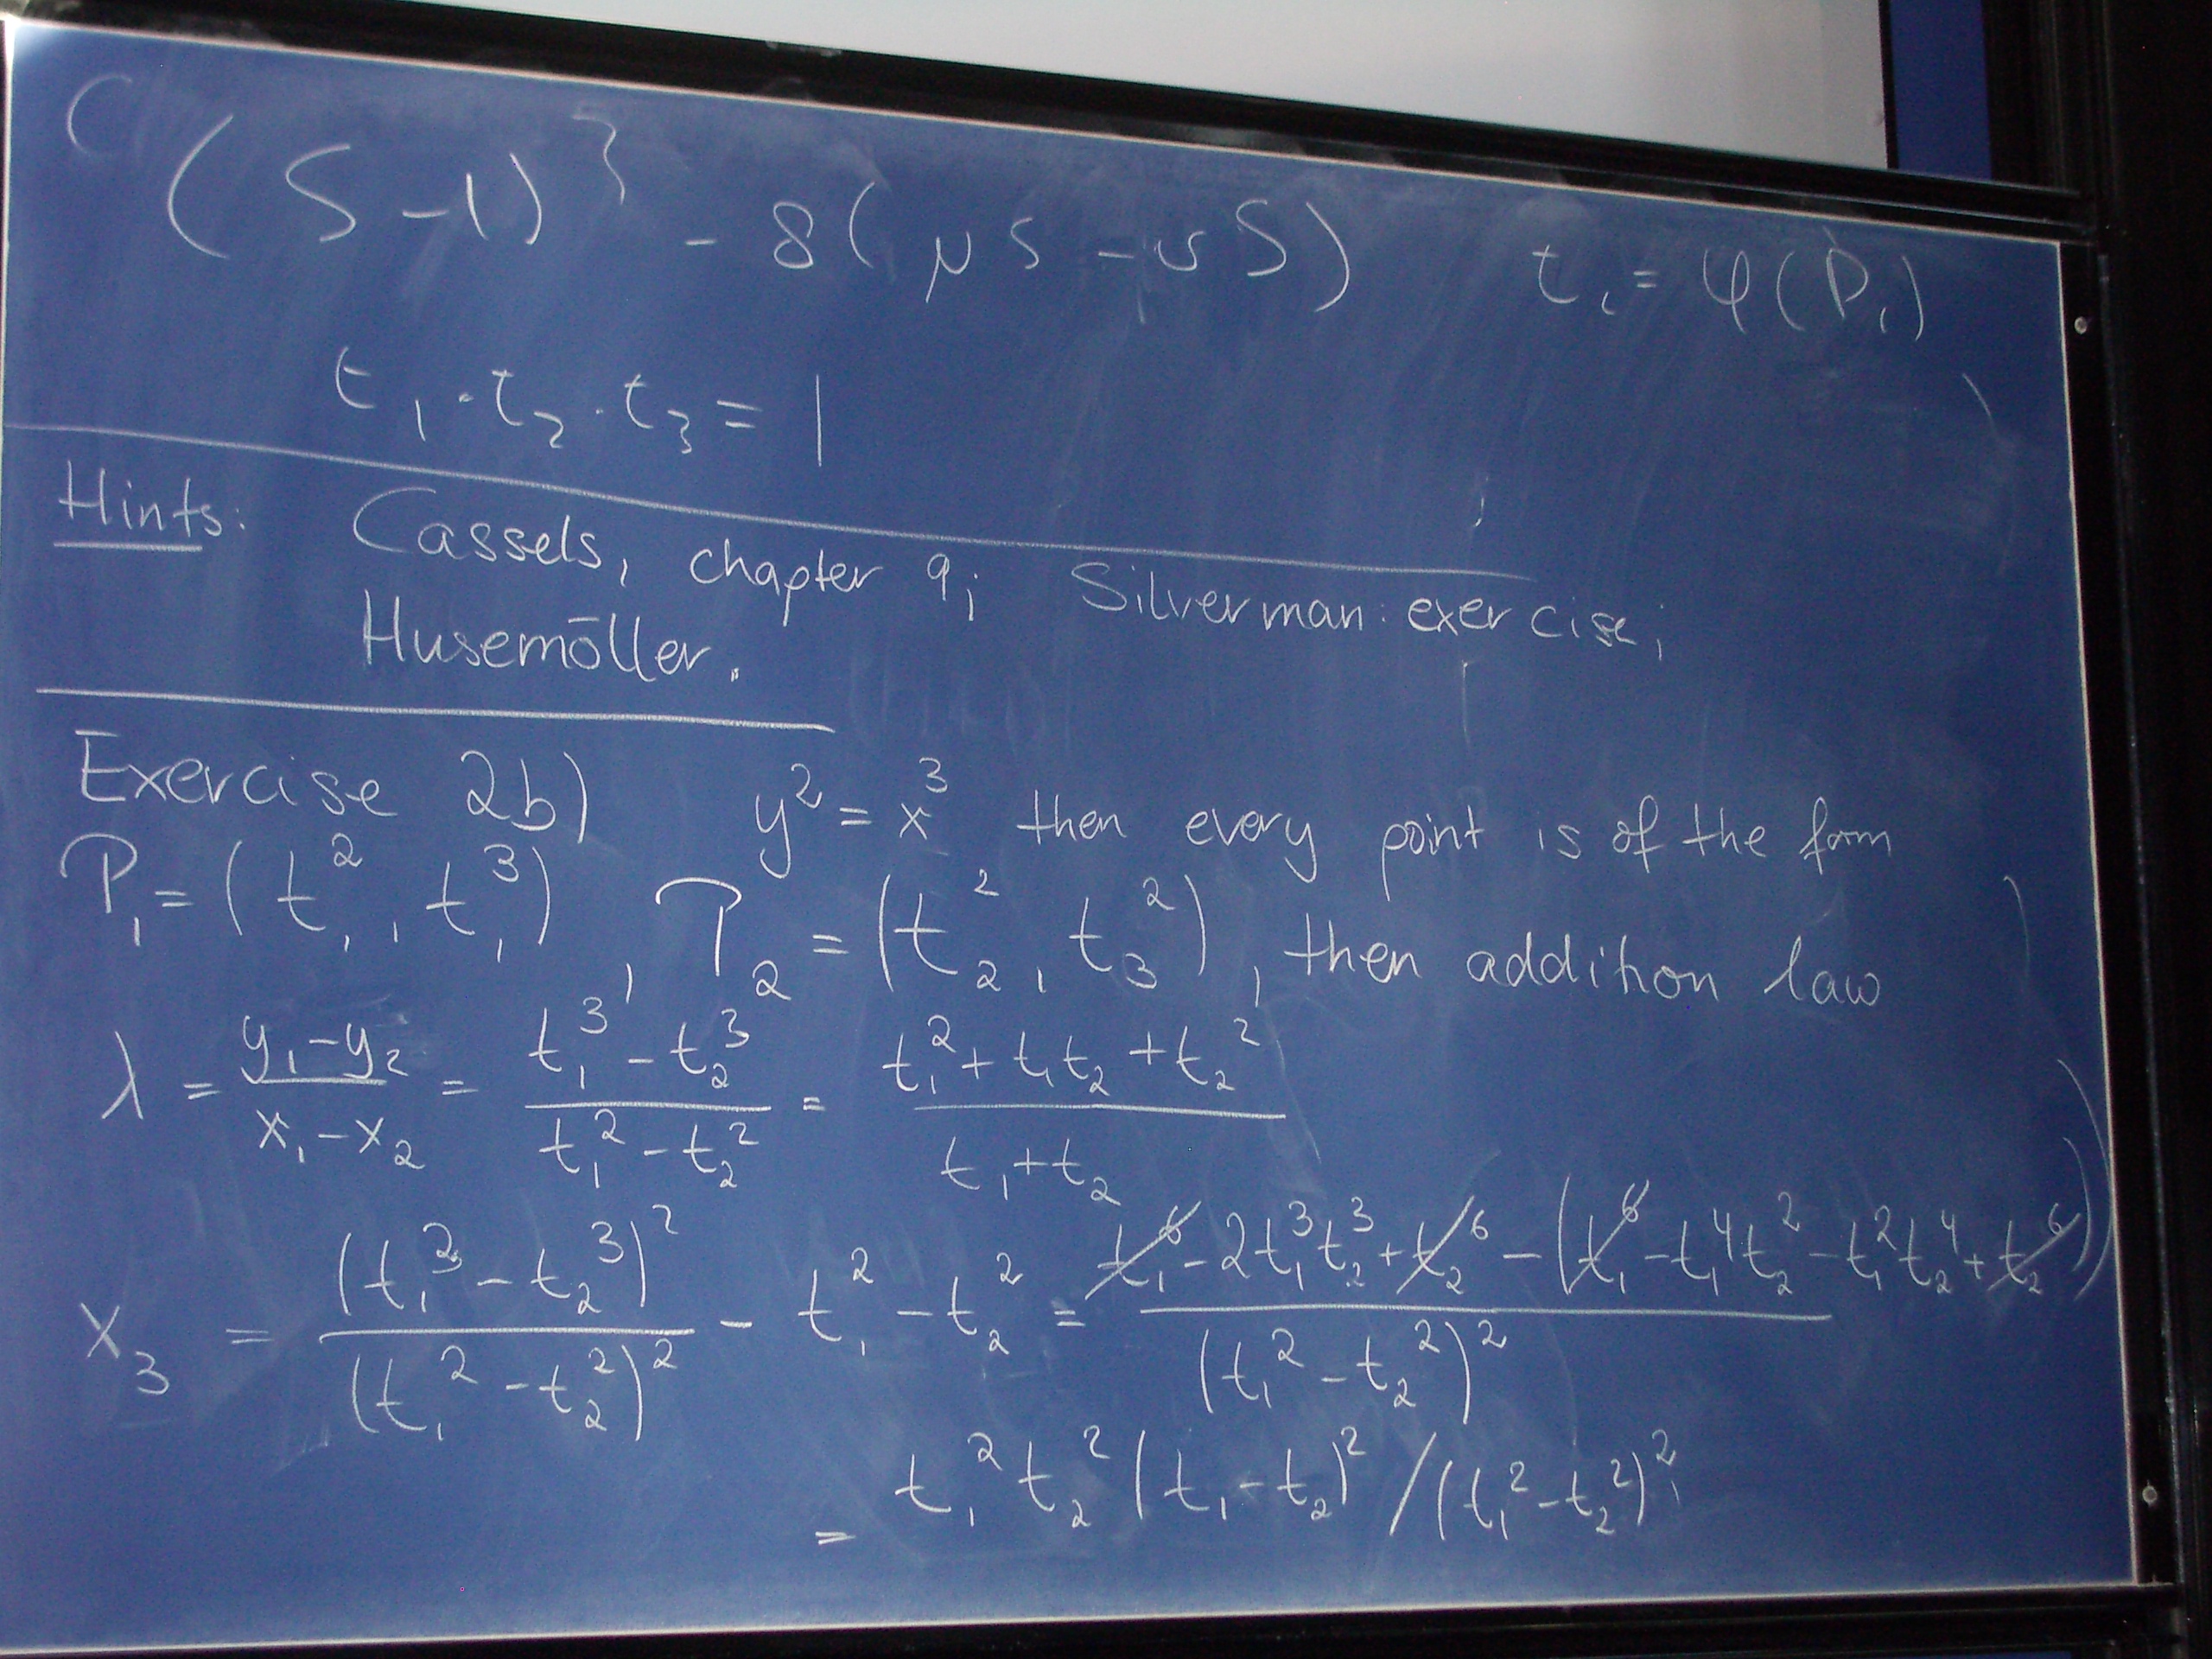 (S-1)^3 - 8(μS - υS) t_i = φ(P_i)
t_1 · t_2 · t_3 = 1
Hints: Cassels, chapter 9; Silverman: exercise,
Husemöller.
Exercise 2b) y^2 = x^3 then every point is of the form
P_1 = (t_1^2, t_1^3), P_2 = (t_2^2, t_3^2), then addition law
λ = (y_1 - y_2)/(x_1 - x_2) = (t_1^3 - t_2^3)/(t_1^2 - t_2^2) = (t_1^2 + t_1t_2 + t_2^2)/(t_1 + t_2)
x_3 = (t_1^3 - t_2^3)^2/(t_1^2 - t_2^2)^2 - t_1^2 - t_2^2 = (t_1^6 - 2t_1^3t_2^3 + t_2^6 - (t_1^6 - t_1^4t_2^2 - t_1^2t_2^4 + t_2^6))/(t_1^2 - t_2^2)^2
= t_1^2 t_2^2 (t_1 - t_2)^2 / (t_1^2 - t_2^2)^2